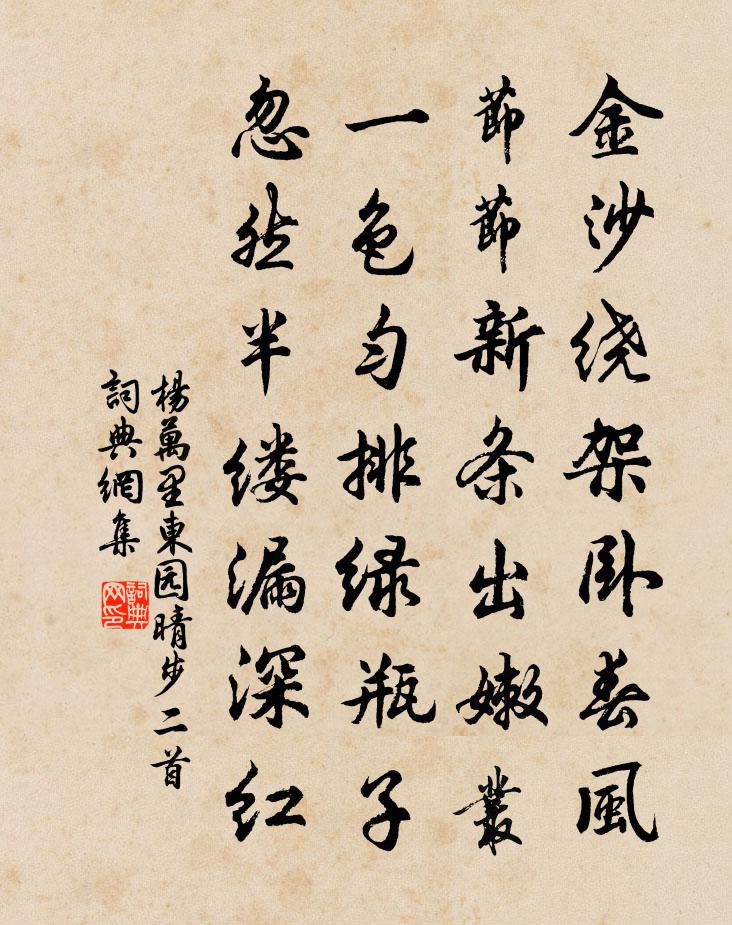 金沙绕架卧春風
節節新条出嫩叢
一色匀排绿瓶子
忽然半缕漏深红
楊萬里東园晴步二首
詞典網集
詞典网印